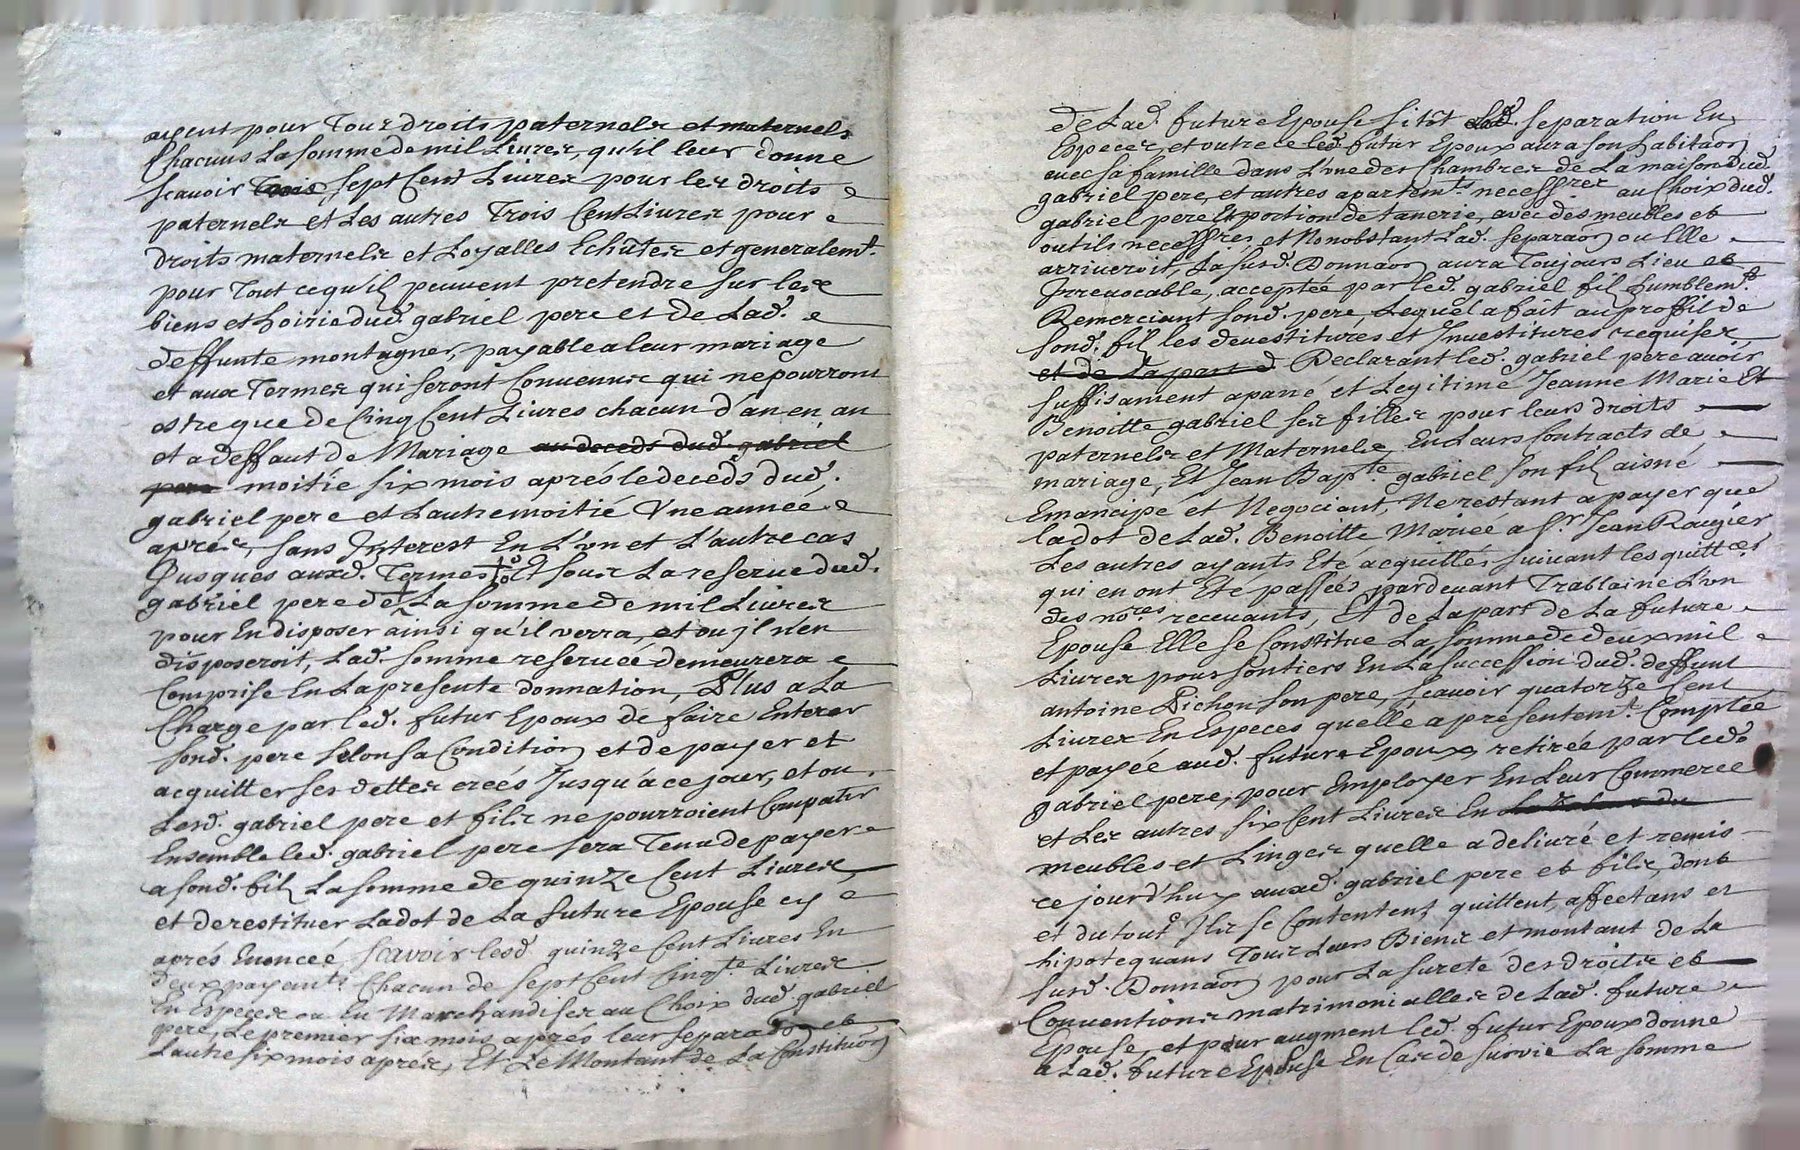 ayent pour Tous droits paternels et maternels
Chacuns La somme de mil Livres, qu'il leur donne
scavoir Trois sept Cent Livres pour les droits
paternels et Les autres Trois Cent Livres pour
droits maternels et Loyalles Echûtes et generalemt.
pour Tout ce qu'il peuvent pretendre sur les
biens et hoirie dud. gabriel pere et de Lad.
deffunte montagner, payable a leur mariage
et aux Termes qui seront Convenus qui ne pourront
estre que de Cinq Cent Livres chacun d'an en an
et a deffaut de Mariage au deceds dud. gabriel
pere moitié six mois aprés le deceds dud.
gabriel pere et L'autre moitié Vne année
aprés, sans Interest En L'vn et L'autre cas
Jusques auxd. Termes Et sous La reserve dud.
gabriel pere de La somme de mil Livres
pour En disposer ainsi qu'il verra, et ou jl n'en
disposeroit, Lad. somme reservée demeurera
Comprise En La presente donnation, Plus a La
Charge par led. futur Epoux de faire Enterer
sond. pere selon sa Condition et de payer et
acquitter ses dettes creés Jusqu'a ce jour, et ou
Lesd. gabriel pere et fils ne pourroient Compatir
Ensemble led. gabriel pere sera Tenu de payer
a sond. fils La somme de quinze Cent Livres
et de restituer La dot de La future Epouse cy
aprés Enoncée, scavoir lesd. quinze Cent Livres En
deux payants. Chacun de sept Cent Cinqte. Livres
En Especes ou En Marchandises au Choix dud. gabriel
pere, Le premier six mois aprés leur separaon et
L'autre six mois aprés, Et Le Montant de La Constituon
de Lad. future Epouse sitôt lad. separation En
Especes, et outre ce led. futur Epoux aura son habitaon
avec sa famille dans L'vne des Chambres de La maison dud.
gabriel pere, et autres apartemts. necessres. au Choix dud.
gabriel pere Et portion de tanerie, avec des meubles et
outils necessres. et Nonobstant Lad. separaon ou Elle
arriveroit, La susd. Donnaon aura Toujours Lieu et
Irrevocable, acceptée par led. gabriel fils humblemt.
Remerciant sond. pere, Lequel a fait au proffit de
sond. fils les devestitures et Investitures requises,
et de La part d Declarant led. gabriel pere avoir
suffisament apané et Legitimé Jeanne Marie Et
Benoitte gabriel ses filles pour leurs droits
paternels et Maternels, En Leurs Contracts de
mariage, Et Jean Bapte. gabriel son fils aisné
Emancipé et Negociant, Ne restant a payer que
la dot de Lad. Benoitte Mariée a Sr. Jean Raugier
Les autres ayants Eté acquittés suivant les quittces.
qui en ont Eté passées pardevant Trablaine L'vn
des nores. recevants, Et de La part de La future
Epouse Elle se Constitue La somme de deux mil
Livres pour son tiers En La succession dud. deffunt
antoine Pichon son pere, scavoir quatorze Cent
Livres En Especes quelle a presentemt. Comptée
et payée aud. futur Epoux, retirée par led.
gabriel pere, pour Employer En Leur Commerce
et Les autres six Cent Livres En La Valeur du
meubles et Linges quelle a delivré et remis
ce jourd'huy auxd. gabriel pere et fils, dont
et du tout Ils se Contentent, quittent, affectans et
hipotequans Tous Leurs Biens et montant de La
susd. Donnaon pour La sureté des droits et
Conventions matrimonialles de Lad. future
Epouse, et pour augment led. futur Epoux donne
a Lad. future Epouse En Cas de survie La somme